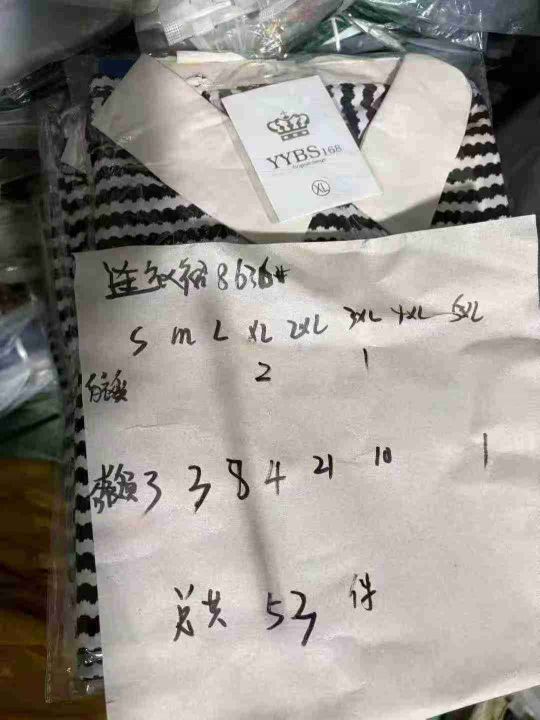 YYBS168
XL
连衣裙8636#
S M L XL 2XL 3XL 4XL 5XL
2 1
3 3 8 4 21 10 1
总共 53 件